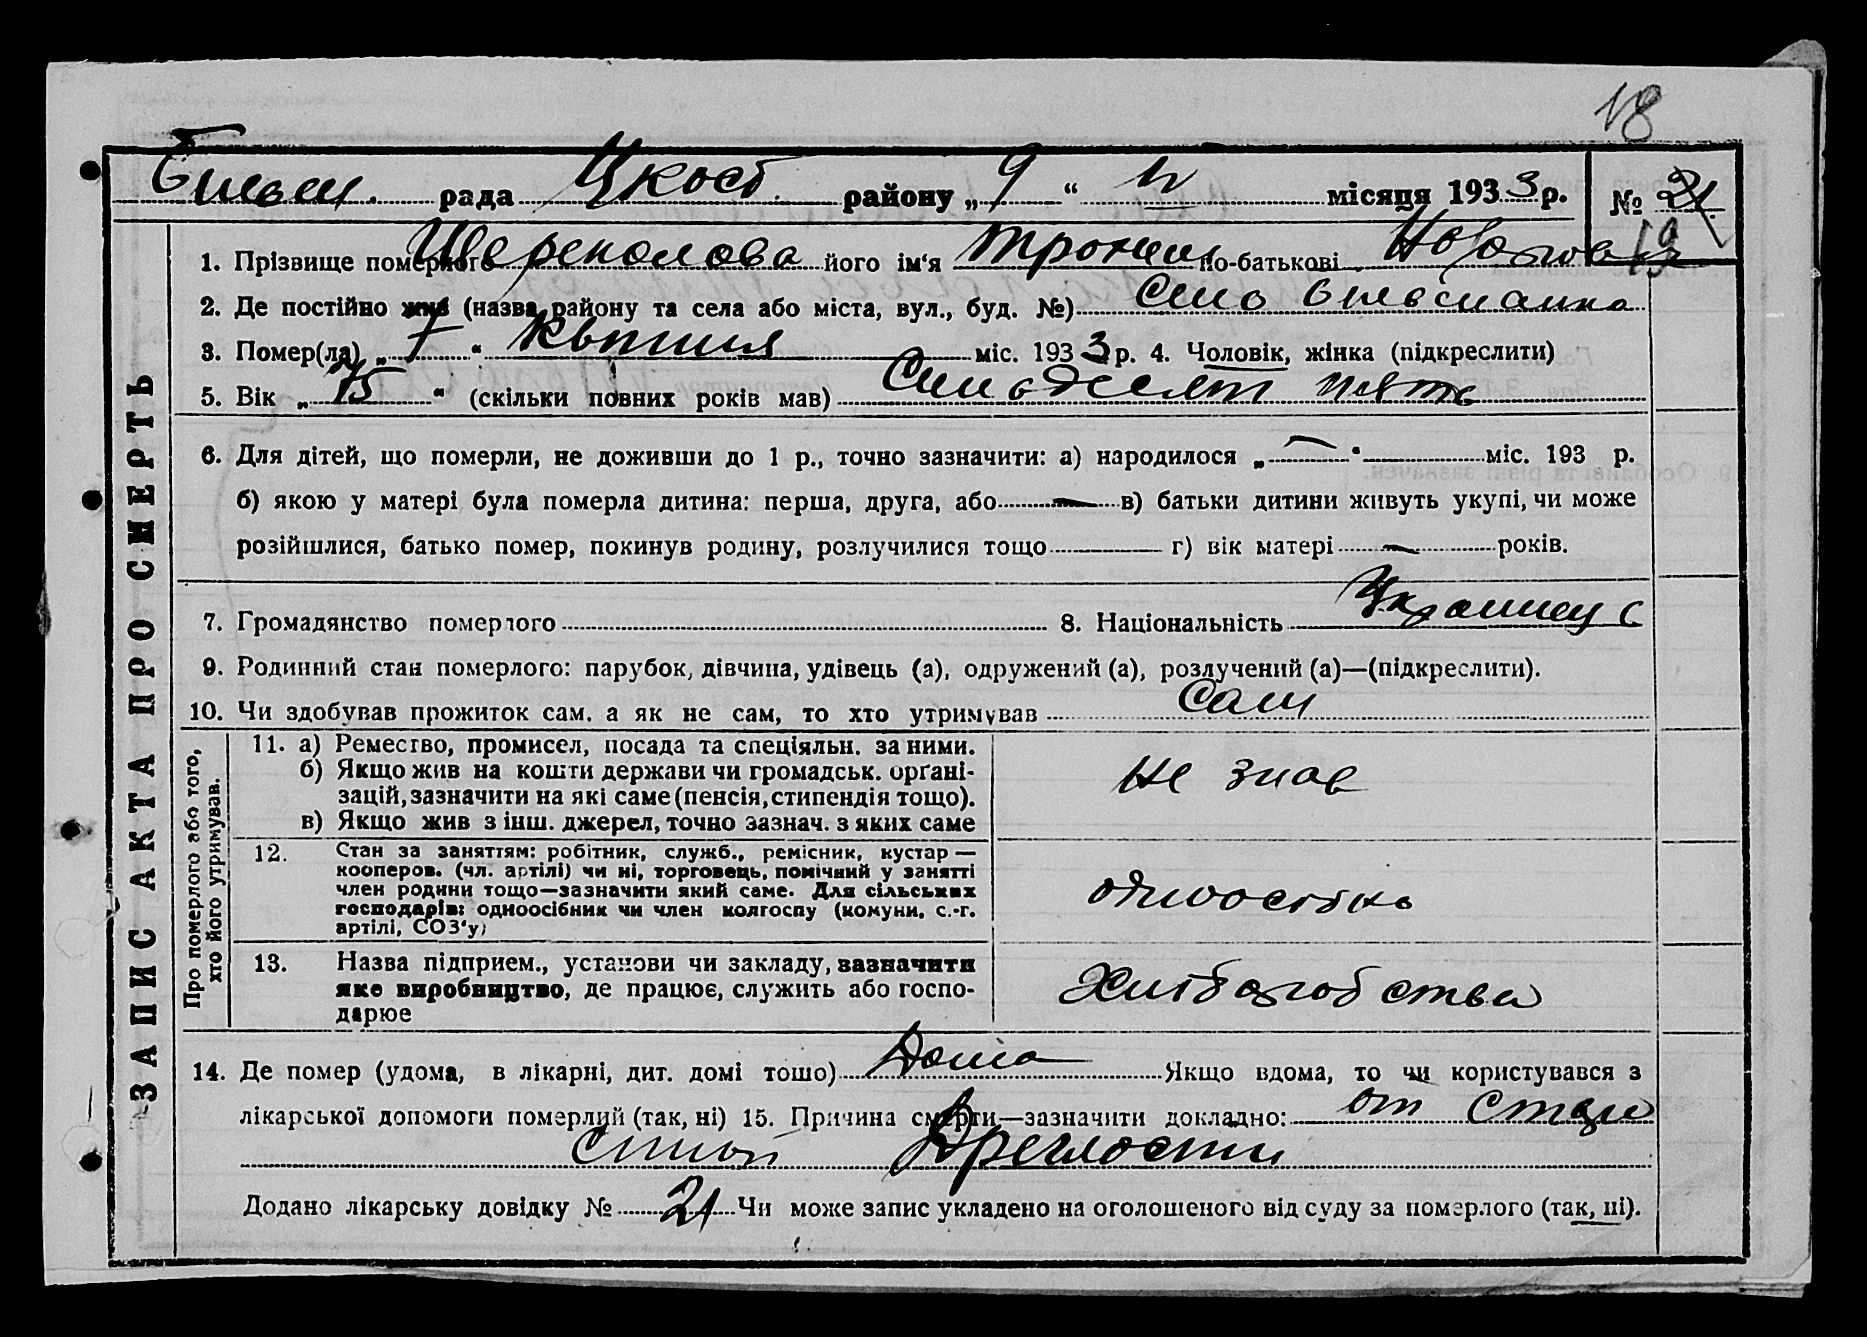 18
рада район у „ 9 “ місяця 1933 р. № 21
19
1. Прізвище померлого його ім'я по-батькові
2. Де постійно жив (назва району та села або міста, вул., буд. №) Село
3. Помер(ла) „ 7 “ міс. 193 3 р. 4. Чоловік, жінка (підкреслити)
5. Вік „ 75 “ (скільки повних років мав)
6. Для дітей, що померли, не доживши до 1 р., точно зазначити: а) народилося „ — “ міс. 193 р.
б) якою у матері була померла дитина: перша, друга, або — в) батьки дитини живуть укупі, чи може
розійшлися, батько помер, покинув родину, розлучилися тощо г) вік матері — років.
7. Громадянство померлого 8. Національність
9. Родинний стан померлого: парубок, дівчина, удівець (а), одружений (а), розлучений (а)—(підкреслити).
10. Чи здобував прожиток сам, а як не сам, то хто утримував Сам
Про померлого або того,
хто його утримував.
11. а) Ремество, промисел, посада та спеціяльн. за ними.
б) Якщо жив на кошти держави чи громадськ. орґані-
зацій, зазначити на які саме (пенсія, стипендія тощо).
в) Якщо жив з інш. джерел, точно зазнач. з яких саме
не знав
12. Стан за заняттям: робітник, служб., ремісник, кустар —
кооперов. (чл. артілі) чи ні, торговець, помічний у занятті
член родини тощо—зазначити який саме. Для сільських
господарів: одноосібник чи член колгоспу (комуни, с.-г.
артілі, СОЗ'у)
13. Назва підприєм., установи чи закладу, зазначити
яке виробництво, де працює, служить або госпо-
дарює
14. Де помер (удома, в лікарні, дит. домі тощо) Дома Якщо вдома, то чи користувався з
лікарської допомоги померлий (так, ні) 15. Причина смерти—зазначити докладно: от
Додано лікарську довідку № 21 Чи може запис укладено на оголошеного від суду за померлого (так, ні).
ЗАПИС АКТА ПРО СМЕРТЬ